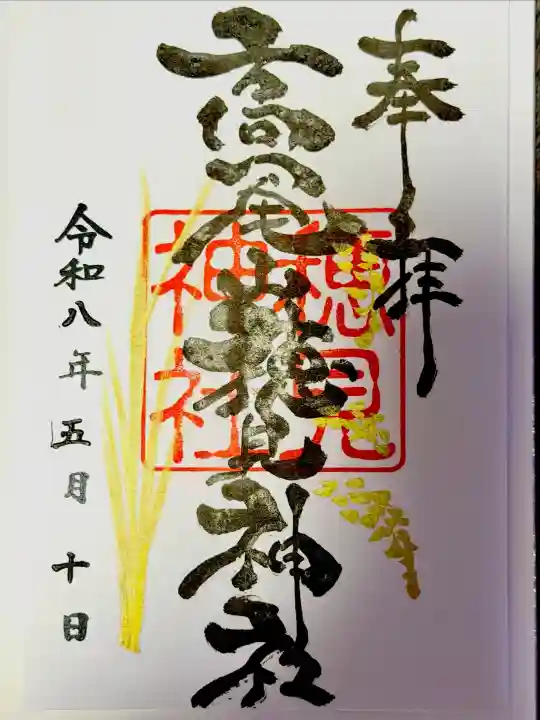 奉拝
高尾山穂見神社
穂見
神社
令和八年五月十日